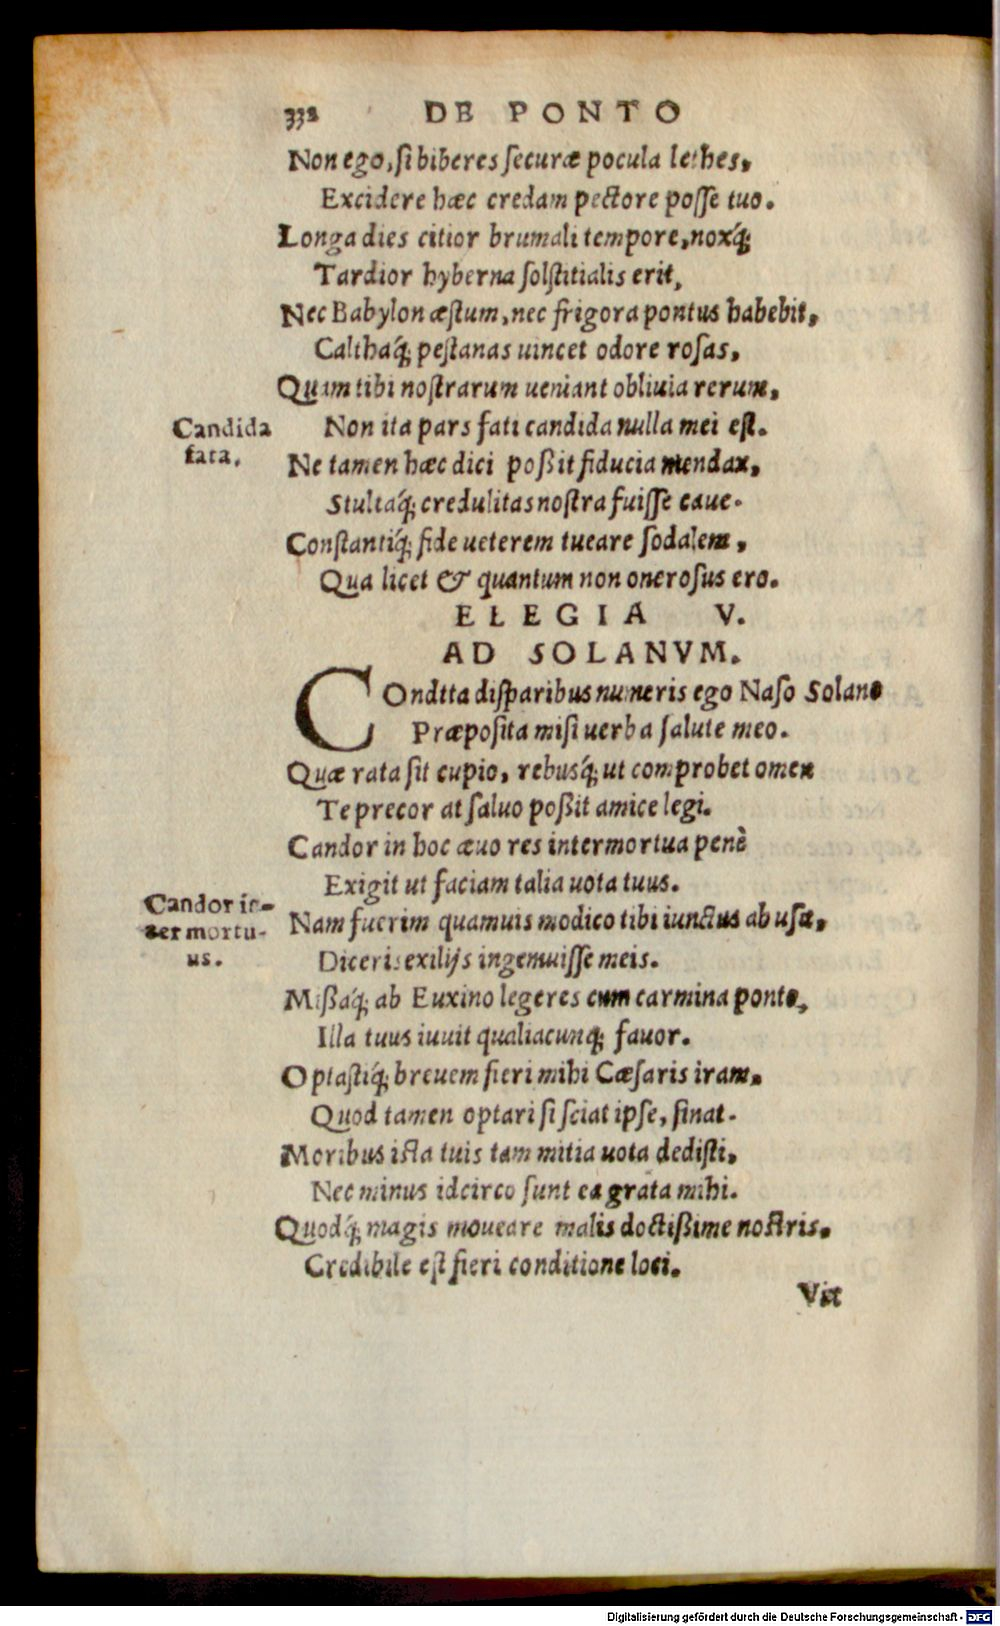 332 DE PONTO
Non ego, si biberes securæ pocula lethes,
Excidere hæc credam pectore posse tuo.
Longa dies citior brumali tempore, noxq́;
Tardior hyberna solstitialis erit,
Nec Babylon æstum, nec frigora pontus habebit,
Calthaq́; pestanas uincet odore rosas,
Quam tibi nostrarum ueniant obliuia rerum,
Candida
fata.
Non ita pars fati candida nulla mei est.
Ne tamen hæc dici poßit fiducia mendax,
Stultaq́; credulitas nostra fuisse caue.
Constantiq́; fide ueterem tueare sodalem,
Qua licet & quantum non onerosus ero.
ELEGIA V.
AD SOLANVM.
COndtta disparibus numeris ego Naso Solano
Præposita misi uerba salute meo.
Quæ rata sit cupio, rebusq́; ut comprobet omen
Te precor at saluo poßit amice legi.
Candor in hoc æuo res intermortua penè
Exigit ut faciam talia uota tuus.
Candor in-
ter mortu-
us.
Nam fuerim quamuis modico tibi iunctus ab usu,
Diceris exilijs ingemuisse meis.
Mißaq́; ab Euxino legeres cum carmina ponto,
Illa tuus iuuit qualiacunq; fauor.
Optastiq́; breuem fieri mihi Cæsaris iram,
Quod tamen optari si sciat ipse, sinat.
Moribus ista tuis tam mitia uota dedisti,
Nec minus idcirco sunt ea grata mihi.
Quodq́; magis moueare malis doctißime nostris.
Credibile est fieri conditione loci.
Vix
Digitalisierung gefördert durch die Deutsche Forschungsgemeinschaft - DFG